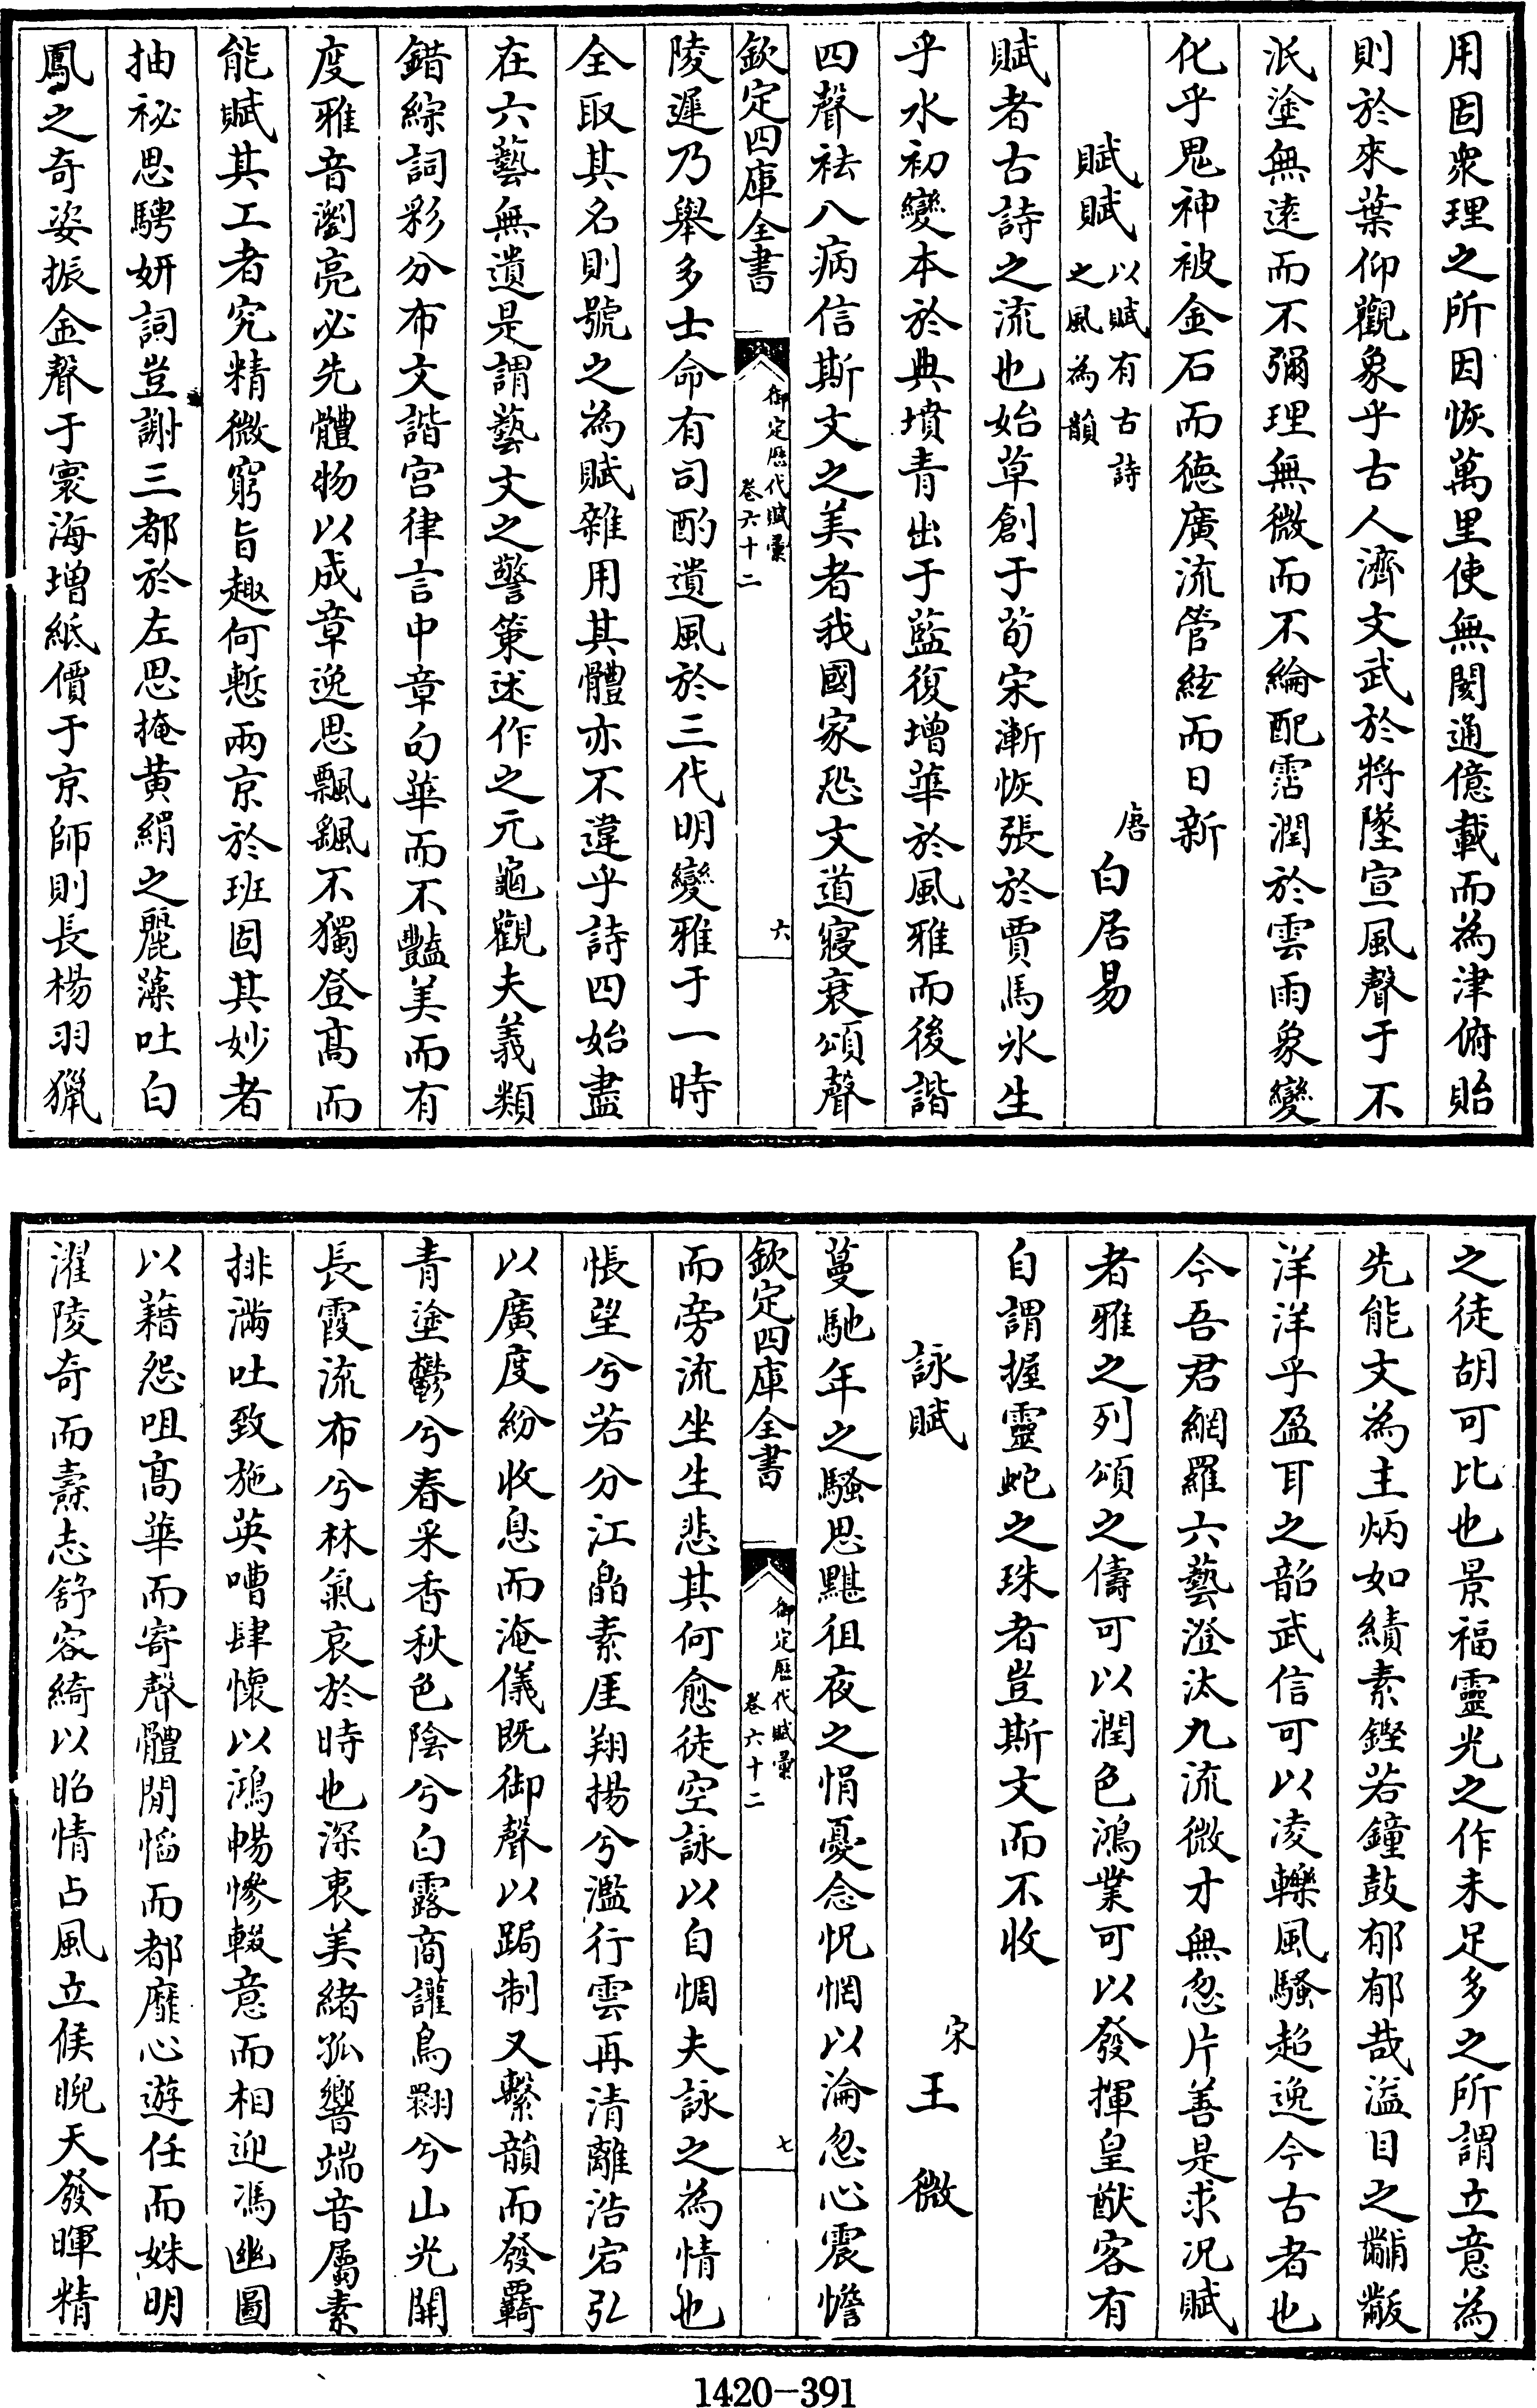 用固衆理之所因恢萬里使無閡通億載而為津俯貽
則於來葉仰觀象乎古人濟文武於將墜宣風聲于不
泯塗無逺而不彌理無微而不綸配霑潤於雲雨象變
化乎鬼神被金石而徳廣流管絃而日新
賦賦以賦有古詩之風為韻
唐白居易
賦者古詩之流也始草創于荀宋漸恢張於賈馬氷生
乎水初變本於典墳青出于藍復增華於風雅而後諧
四聲袪八病信斯文之美者我國家恐文道寖衰頌聲
欽定四庫全書
御定歴代賦彙
卷六十二
六
陵遲乃舉多士命有司酌遺風於三代明變雅于一時
全取其名則號之為賦雜用其體亦不違乎詩四始盡
在六藝無遺是謂藝文之警策述作之元龜觀夫義類
錯綜詞彩分布文諧宫律言中章句華而不豔美而有
度雅音瀏亮必先體物以成章逸思飄颻不獨登髙而
能賦其工者究精微窮旨趣何慙兩京於班固其妙者
抽祕思騁妍詞豈謝三都於左思掩黄絹之麗藻吐白
鳳之奇姿振金聲于寰海增紙價于京師則長楊羽獵
之徒胡可比也景福靈光之作未足多之所謂立意為
先能文為主炳如繢素鏗若鐘鼓郁郁哉溢目之黼黻
洋洋乎盈耳之韶武信可以凌轢風騷超逸今古者也
今吾君網羅六藝澄汰九流微才無忽片善是求况賦
者雅之列頌之儔可以潤色鴻業可以發揮皇猷客有
自謂握靈蛇之珠者豈斯文而不收
詠賦
宋王微
蔓馳年之騷思黮徂夜之悁憂念怳惘以淪忽心震憺
欽定四庫全書
御定歴代賦彙
卷六十二
七
而旁流坐生悲其何愈徒空詠以自惆夫詠之為情也
悵望兮若分江皛素厓翔揚兮濫行雲再清離浩宕弘
以廣度紛收息而淹儀既御聲以跼制又繫韻而發羇
青塗鬱兮春采香秋色陰兮白露商讙鳥翾兮山光開
長霞流布兮林氣哀於時也深衷美緒孤響端音屬素
排滿吐致施英嘈肆懷以鴻暢慘輟意而相迎馮幽圖
以藉怨咀髙華而寄聲體閒惱而都靡心遊任而姝明
濯陵奇而燾志舒容綺以昭情占風立候睨天發暉精
1420-391